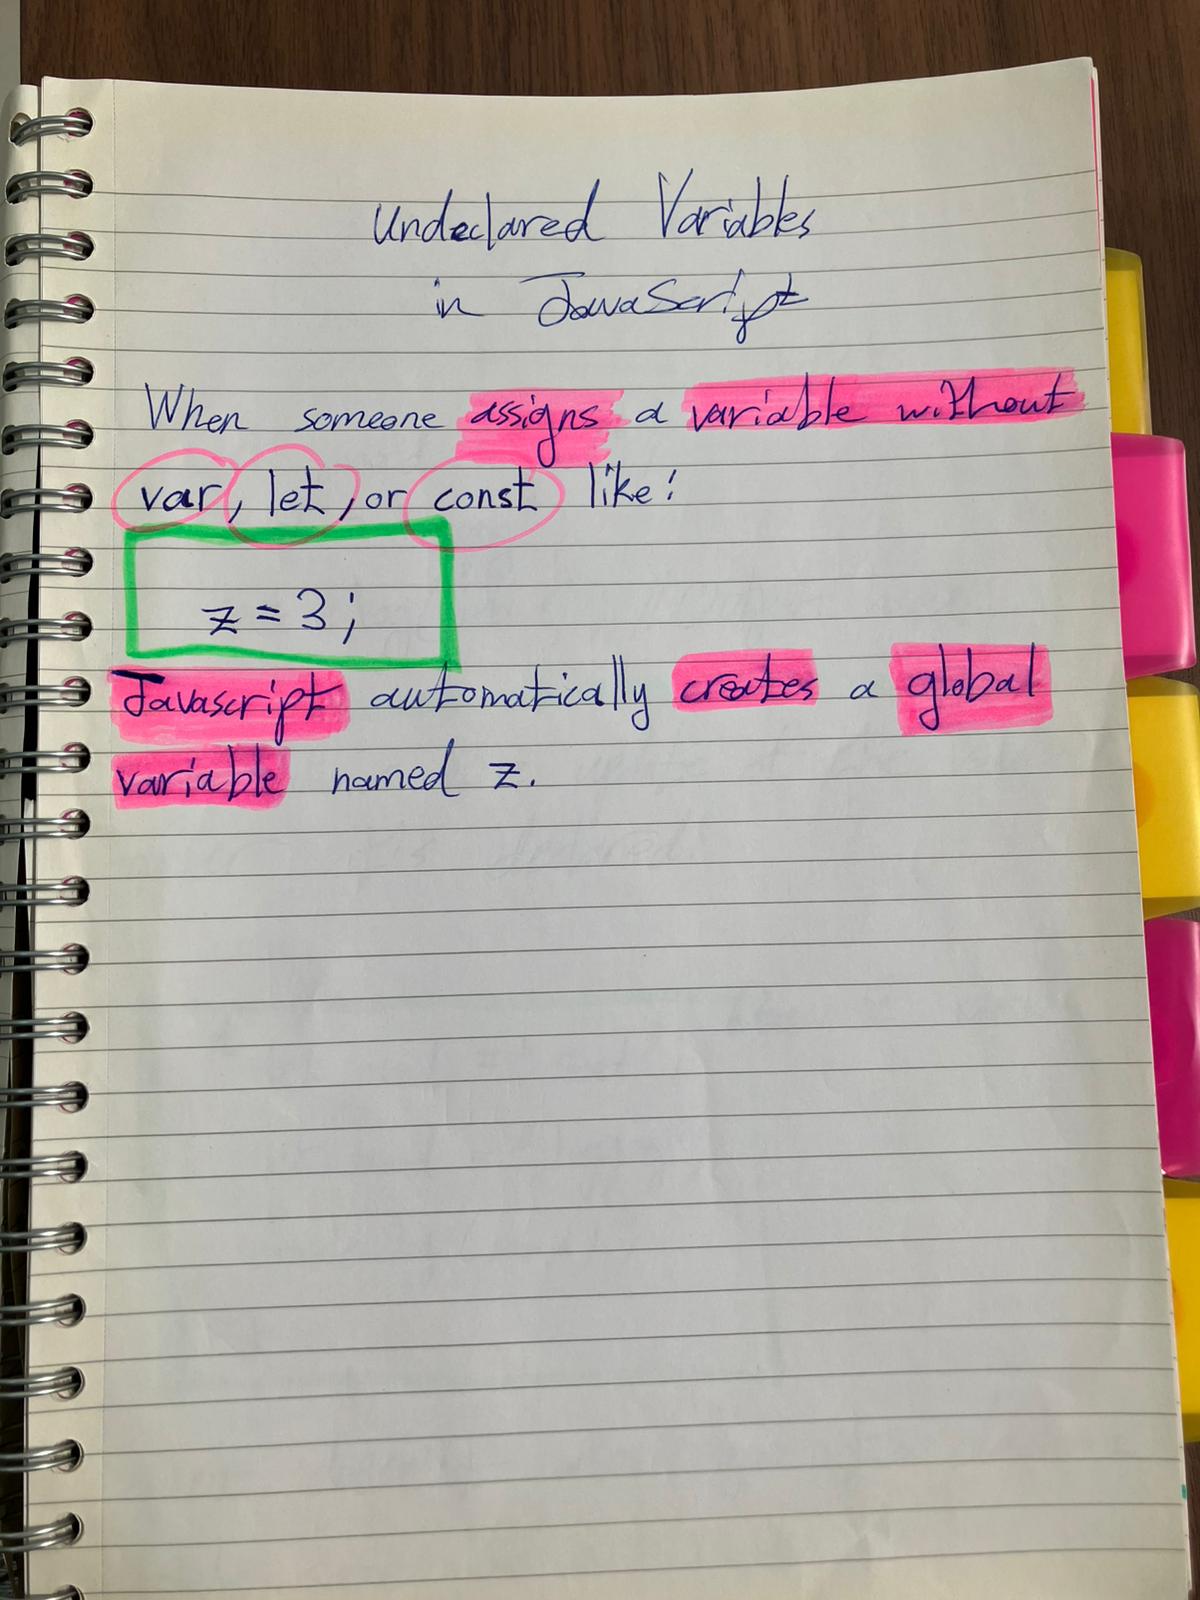 Undeclared Variables
in JavaScript
When someone assigns a variable without
var, let, or const like:
z = 3;
Javascript automatically creates a global
variable named z.